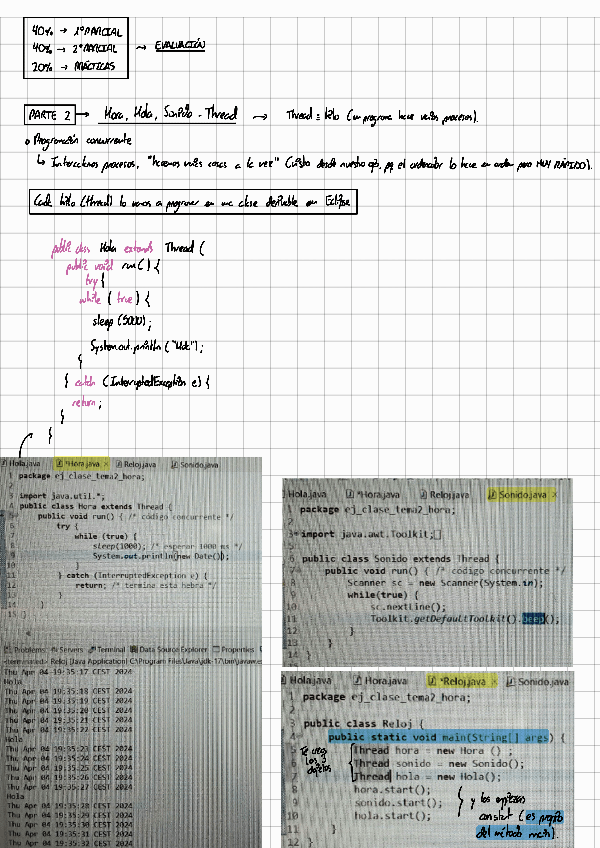 40% → 1º PARCIAL
40% → 2º PARCIAL
20% → PRÁCTICAS
→ EVALUACIÓN
PARTE 2 → Hora, Hola, Sonido - Thread → Thread = hilo (un programa hace varios procesos).
Programación concurrente
↳ Intercalamos procesos, "hacemos varias cosas a la vez" (visto desde nuestro ojo, pq el ordenador lo hace en orden pero MUY RÁPIDO).
Cada hilo (thread) lo vamos a programar en una clase derivable en Eclipse
public class Hola extends Thread {
public void run() {
try {
while (true) {
sleep (5000);
System.out.println ("Hola");
}
} catch (InterruptedException e) {
return;
}
}
Hola.java *Hora.java × Reloj.java Sonido.java
1 package ej_clase_tema2_hora;
2
3 import java.util.*;
4 public class Hora extends Thread {
5 public void run() { /* código concurrente */
6 try {
7 while (true) {
8 sleep(1000); /* esperar 1000 ms */
9 System.out.println(new Date());
10 }
11 } catch (InterruptedException e) {
12 return; /* termina esta hebra */
13 }
14 }
15 }
Problems Servers Terminal Data Source Explorer Properties
<terminated> Reloj [Java Application] C:\Program Files\Java\jdk-17\bin\javaw.ex
Thu Apr 04 19:35:17 CEST 2024
Hola
Thu Apr 04 19:35:18 CEST 2024
Thu Apr 04 19:35:19 CEST 2024
Thu Apr 04 19:35:20 CEST 2024
Thu Apr 04 19:35:21 CEST 2024
Thu Apr 04 19:35:22 CEST 2024
Hola
Thu Apr 04 19:35:23 CEST 2024
Thu Apr 04 19:35:24 CEST 2024
Thu Apr 04 19:35:25 CEST 2024
Thu Apr 04 19:35:26 CEST 2024
Thu Apr 04 19:35:27 CEST 2024
Hola
Thu Apr 04 19:35:28 CEST 2024
Thu Apr 04 19:35:29 CEST 2024
Thu Apr 04 19:35:30 CEST 2024
Thu Apr 04 19:35:31 CEST 2024
Thu Apr 04 19:35:32 CEST 2024
Hola.java *Hora.java Reloj.java Sonido.java ×
1 package ej_clase_tema2_hora;
2
3 import java.awt.Toolkit;
5
6 public class Sonido extends Thread {
7 public void run() { /* código concurrente */
8 Scanner sc = new Scanner(System.in);
9 while(true) {
10 sc.nextLine();
11 Toolkit.getDefaultToolkit().beep();
12 }
13 }
14 }
Hola.java Hora.java *Reloj.java × Sonido.java
1 package ej_clase_tema2_hora;
2
3 public class Reloj {
4 public static void main(String[] args) {
5 Thread hora = new Hora () ;
6 Thread sonido = new Sonido();
7 Thread hola = new Hola();
8 hora.start();
9 sonido.start();
10 hola.start();
11 }
12 }
Te creas los 3 objetos
y los empiezas
con start (es propio
del método main).